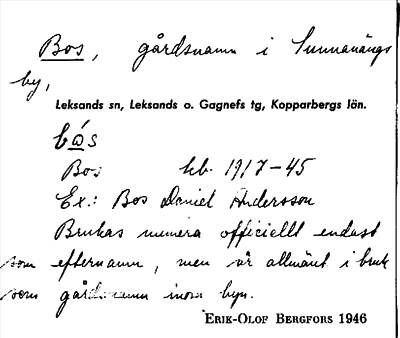 Bos, gårdsnamn i Sunnanängs
by,
Leksands sn, Leksands o. Gagnefs tg, Kopparbergs län.
bǿs
Bos hb. 1917-45
Ex.: Bos Daniel Andersson
Brukas numera officiellt endast
som efternamn, men är allmänt i bruk
som gårdsnamn inom byn.
ERIK-OLOF BERGFORS 1946